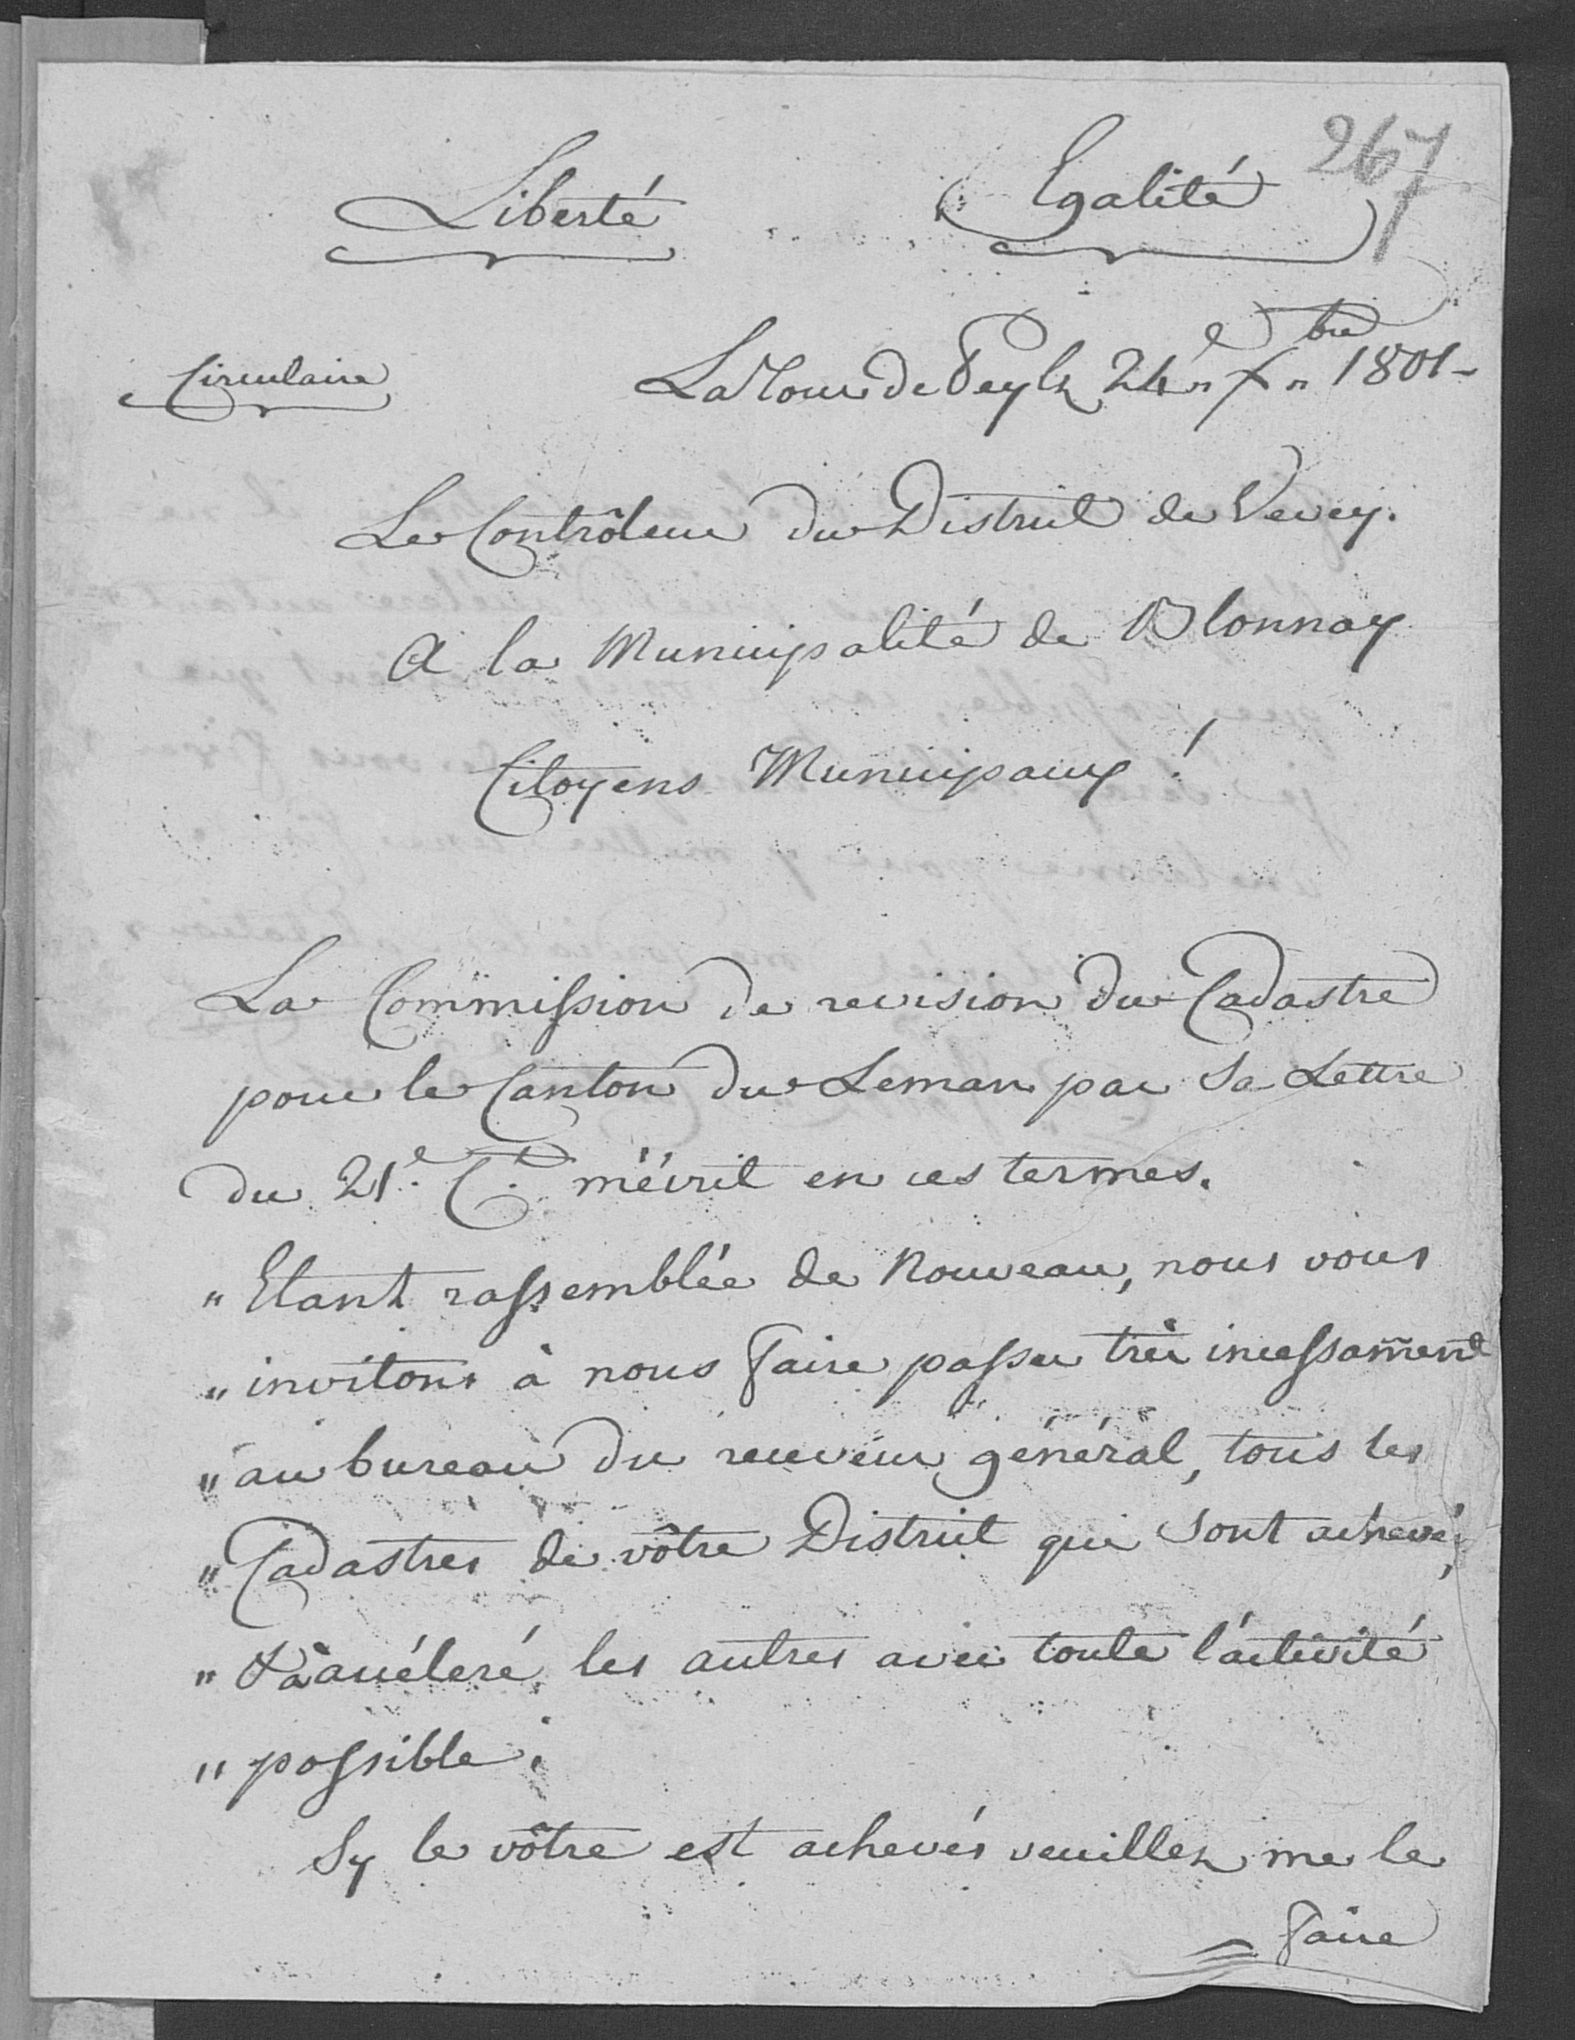 267
Liberté Egalité
Circulaire La Tour de Peylz 24e Xbre 1801-
Le Contrôleur du District de Vevey.
A la Municipalité de Blonnay
Citoyens Municipaux!
La Commission de revision du Cadastre
pour le Canton du Leman par sa Lettre
du 21e. Ct. m'écrit en ces termes.
" Etant rassemblée de Nouveau, nous vous
" invitons à nous faire passer très incessament
" au bureau du receveur général, tous les
" Cadastres de vôtre District qui sont achevé,
" & à accéleré les autres avec toute l'activité
" possible.
Sy le vôtre est achevés veuillez me le
faire